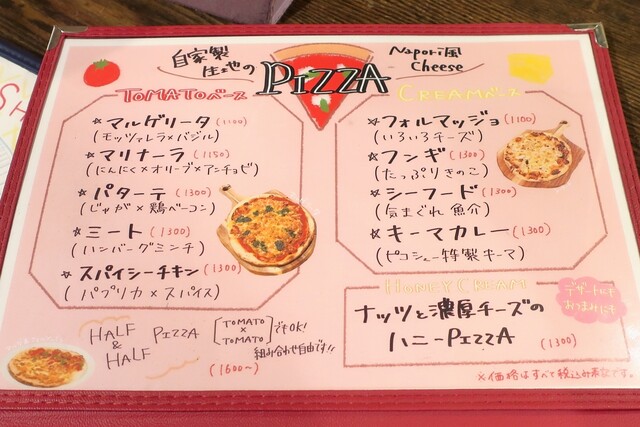 自家製
生地の
PIZZA
Napori風
Cheese
TOMATOベース
☆マルゲリータ (1100)
(モッツァレラ×バジル)
☆マリナーラ (1150)
(にんにく×オリーブ×アンチョビ)
☆パターテ (1300)
(じゃが×鶏ベーコン)
☆ミート (1300)
(ハンバーグミンチ)
☆スパイシーチキン (1300)
(パプリカ×スパイス)
CREAMベース
☆フォルマッジョ (1100)
(いろいろチーズ)
☆フンギ (1300)
(たっぷりきのこ)
☆シーフード (1300)
(気まぐれ魚介)
☆キーマカレー (1300)
(ピコシェー特製キーマ)
HONEY CREAM
デザートにも
おつまみにも
ナッツと濃厚チーズの
ハニーPIZZA (1300)
HALF
&
HALF
PIZZA
[TOMATO
×
TOMATO]でもOK!
組み合わせ自由です!!
(1600〜)
※価格はすべて税込み表記です。